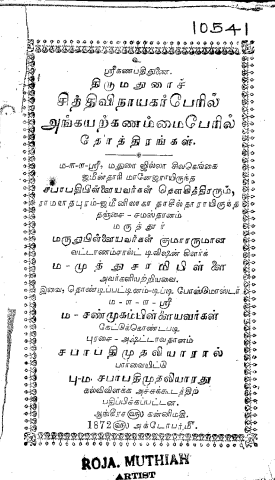 10541
உ
ஸ்ரீகணபதிதுணை.
திருமதுரைச்
சித்திவிநாயகர்பேரில்
அங்கயற்கணம்மைபேரில்
தோத்திரங்கள்.
ம-ா-ா-ஸ்ரீ, மதுரை ஜில்லா சிவகெங்கை
ஜமீன்தாரி மானேஜராயிருந்த
சபாபதிபிள்ளையவர்கள் தௌகித்திரரும்,
ராமனாதபுரம்-ஜமீன்
தஞ்சை-சமஸ்தானம்
மருத்தூர்
மருதுபிள்ளையவர்கள் குமாரருமான
டிவிஷன் கிளார்க்
ம-முத்துசாமிபிள்ளை
அவர்களியற்றியவை.
இவை, தொண்டிப்பட்டினம்-டிப்டி போஸ்ட்மாஸ்டர்
ம-ா-ா-ஸ்ரீ
ம-சண்முகம்பிள்ளையவர்கள்
கேட்டுக்கொண்டபடி
புரசை-அஷ்டாவதானம்
சபாபதிமுதலியாரால்
பார்வையிட்டு
பு-ம. சபாபதிமுதலியாரது
கல்விவிளக்க அச்சுக்கூடத்திற்
பதிப்பிக்கப்பட்டன.
ஆங்கிரச ௵ கன்னிமதி.
1872 ௵ அக்டோபர் ௴.
ROJA. MUTHIAH
ARTIST